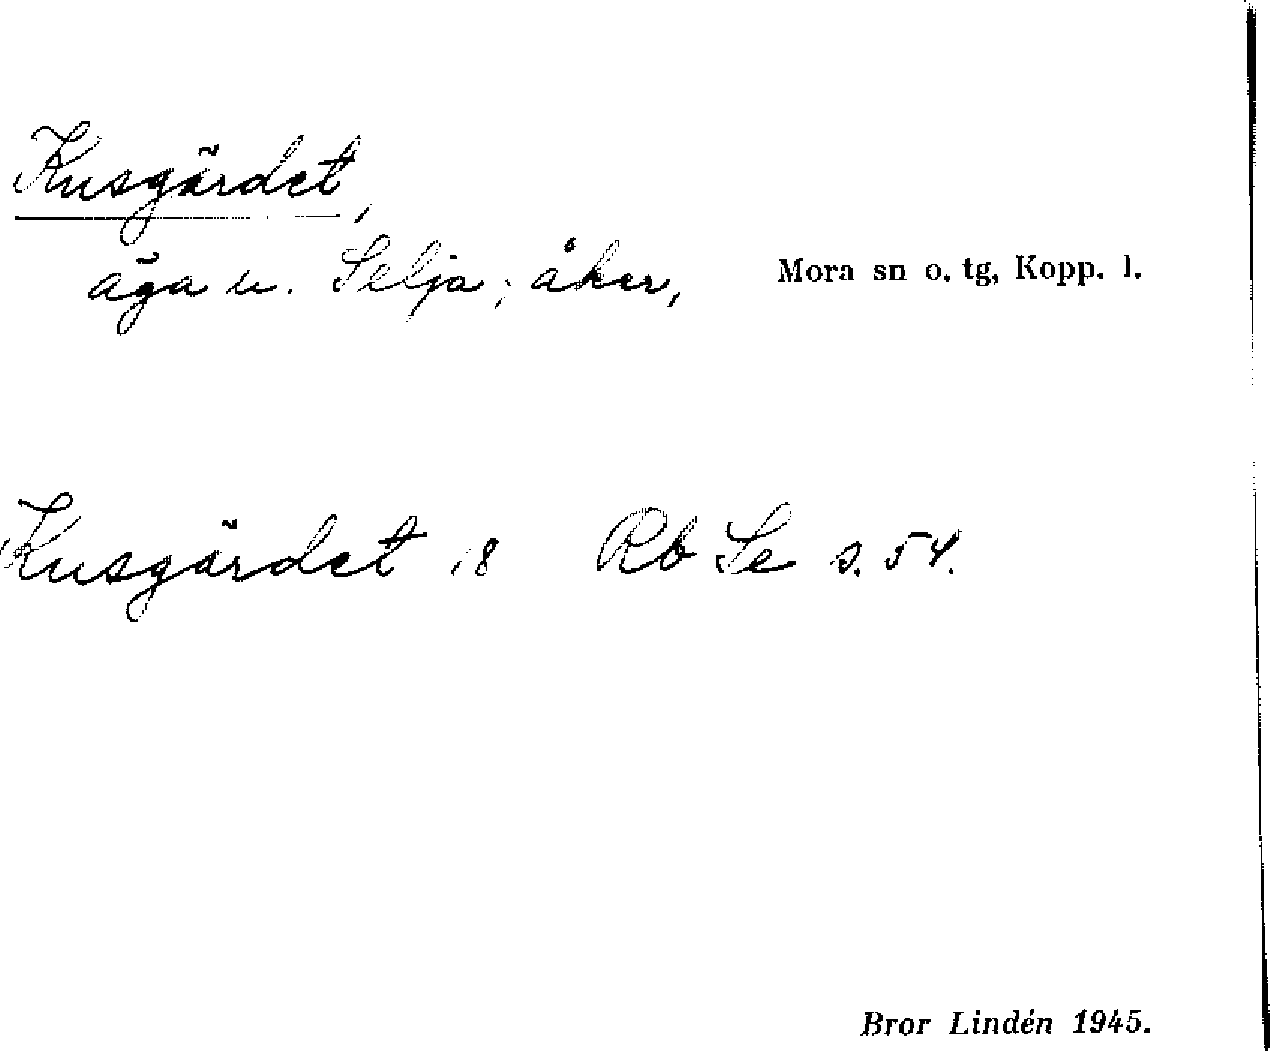 Kusgärdet,
äga u. Selja; åker, Mora sn o. tg, Kopp. l.
Kusgärdet 18 Rb Se s. 54.
Bror Lindén 1945.